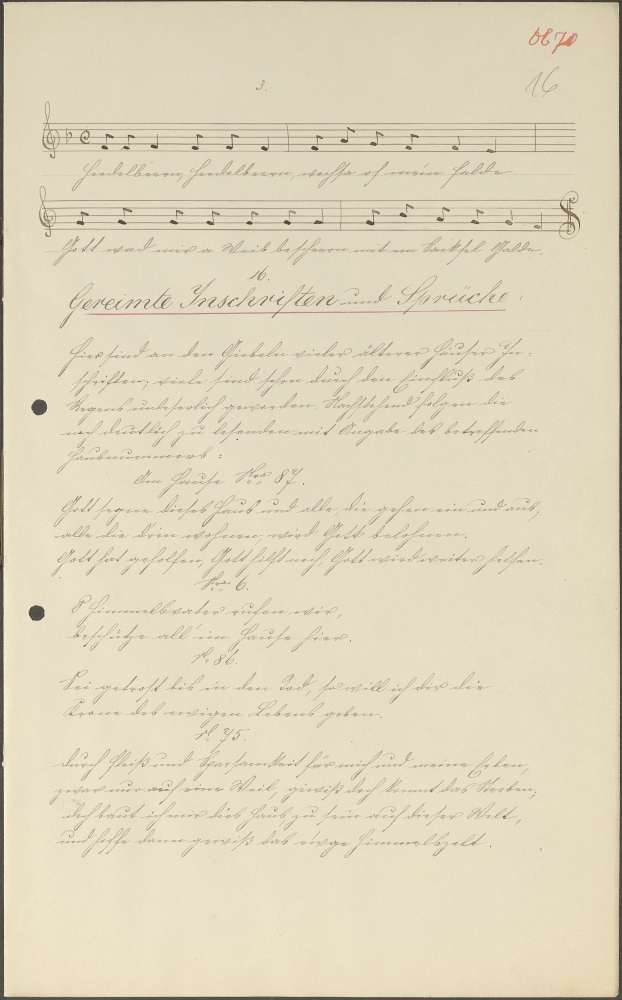 Ob 70
16
3.
Heidelbeeren, Heidelbeeren, wachsa of meim Halde
Gott wird mir a Weib beschera mit em
16.
Gereimte Inschriften und Sprüche.
Hier sind an den Giebeln vieler älterer Häuser In-
schriften; viele sind schon durch den Einfluß des
Regens unleserlich geworden. Nachstehend folgen die
noch deutlich zu lesenden mit Angabe des betreffenden
Hausnummers:
Am Hause Nro 87.
Gott segne dieses Haus und alle, die gehen ein und aus,
alle die drin wohnen, wird Gott belohnen.
Gott hat geholfen, Gott hilft noch, Gott wird weiter helfen.
Nro 6.
O Himmelsvater rufen wir,
beschütze all' im Hause hier.
N. 86.
Sei getrost bis in den Tod, so will ich dir die
Krone des ewigen Lebens geben.
N. 75.
Durch Fleiß und Sparsamkeit für mich und meine Erben,
zwar nur auf eine Weil, gewiß doch kommt das Sterben;
doch baut ich mir dies Haus zu sein auf dieser Welt,
und hoffe dann gewiß das ew'ge Himmelszelt.